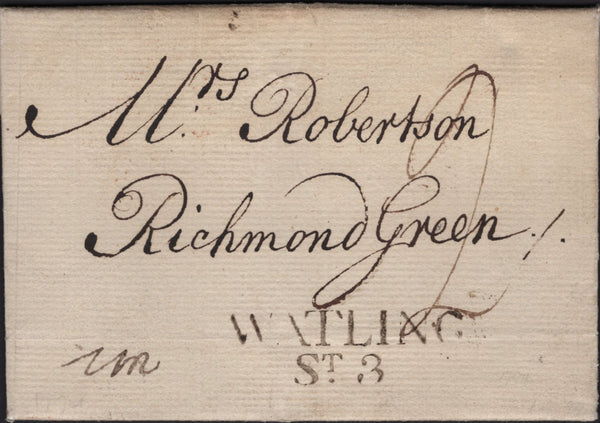 Mrs Robertson
2
Richmond Green /.
WATLING
ST. 3